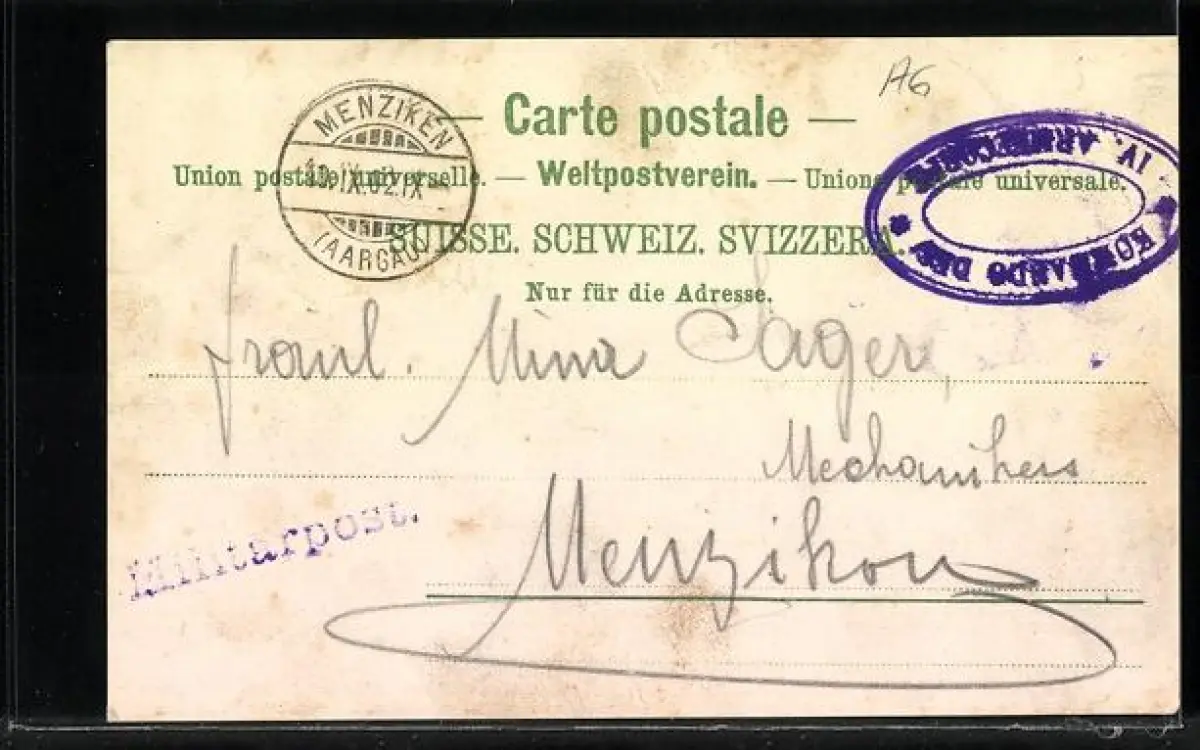 AG
— Carte postale —
Union postale universelle. — Weltpostverein. — Unione postale universale.
SUISSE. SCHWEIZ. SVIZZERA.
Nur für die Adresse.
MENZIKEN
IX.02.IX
(AARGAU)
KOMMANDO DES
IV. ARMEECORPS
Fräul. Mina Sager,
Mechanikers
Menzikon
Militärpost.